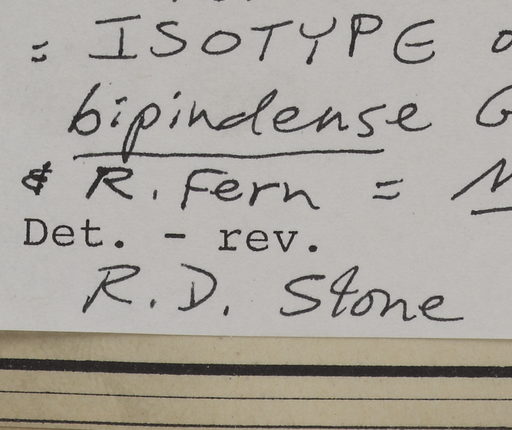 = ISOTYPE
bipindense G
& R. Fern =
Det. - rev.
R. D. Stone